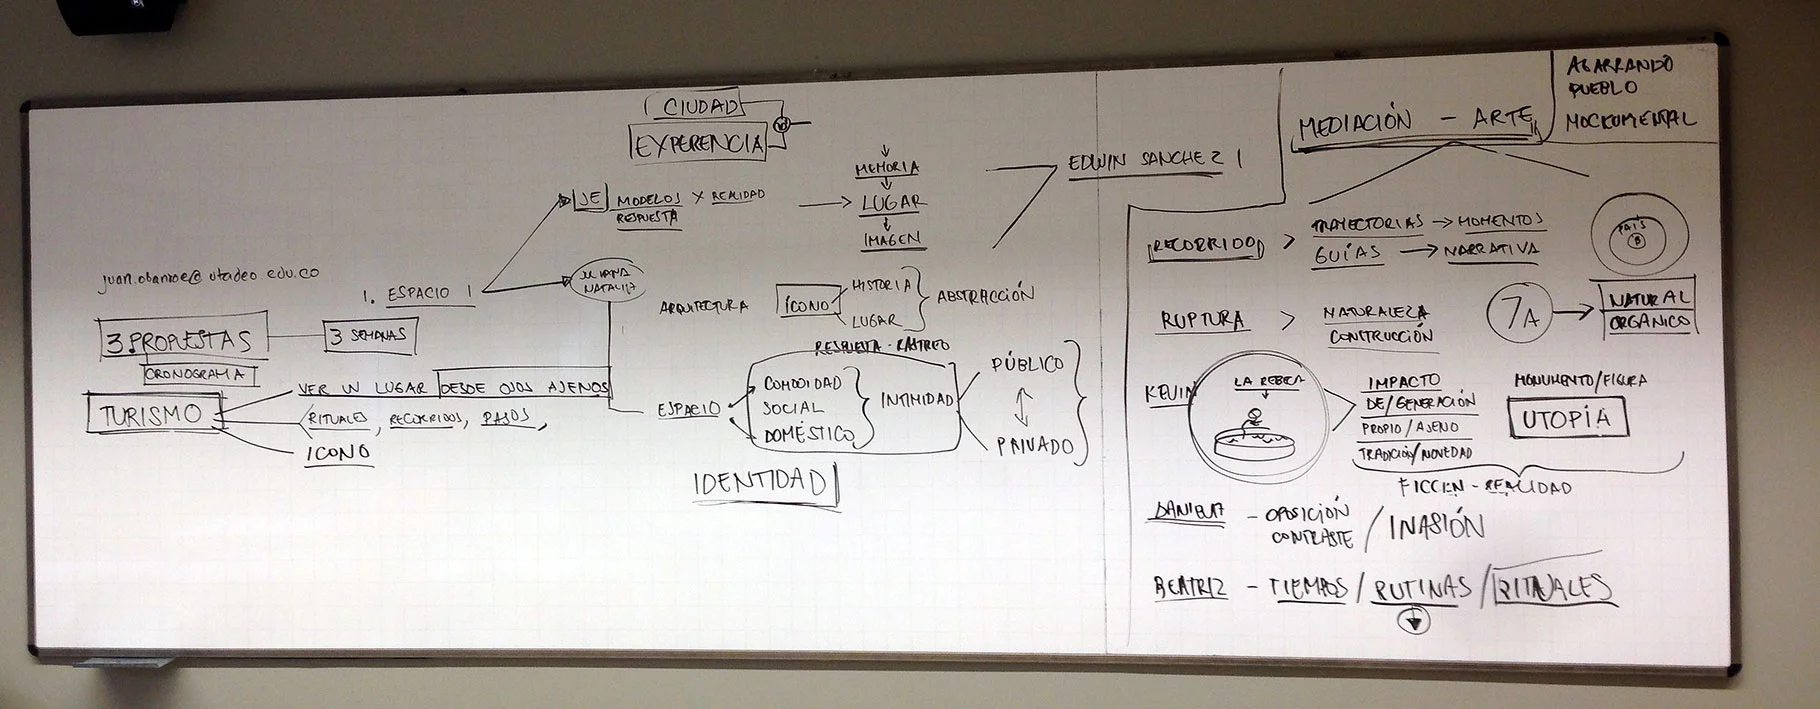 CIUDAD
EXPERENCIA
MEMORIA
JE MODELOS Y REALIDAD
RESPUESTA
LUGAR
IMAGEN
EDWIN SANCHEZ
1. ESPACIO 1
JULIANA
NATALIA
3 PROPUESTAS
3 SEMANAS
CRONOGRAMA
TURISMO
VER UN LUGAR DESDE OJOS AJENOS
RITUALES, RECORRIDOS, PASOS,
ICONO
ARQUITECTURA
ÍCONO
HISTORIA
LUGAR
ABSTRACCIÓN
RESPUESTA - RASTREO
ESPACIO
COMODIDAD
SOCIAL
DOMÉSTICO
INTIMIDAD
PÚBLICO
PRIVADO
IDENTIDAD
MEDIACIÓN - ARTE
AGARRANDO
PUEBLO
MOCKUMENTAL
RECORRIDO > TRAYECTORIAS → MOMENTOS
GUÍAS → NARRATIVA
PAIS
B
RUPTURA > NATURALEZA
CONSTRUCCIÓN
7A → NATURAL
ORGÁNICO
KEVIN
LA REBECA
IMPACTO
DE/GENERACIÓN
PROPIO/AJENO
TRADICIÓN/NOVEDAD
MONUMENTO/FIGURA
UTOPÍA
FICCIEN - REALIDAD
DANIELA - OPOSICIÓN
CONTRASTE / INASIÓN
BEATRIZ - TIEMPOS / RUTINAS / RITUALES